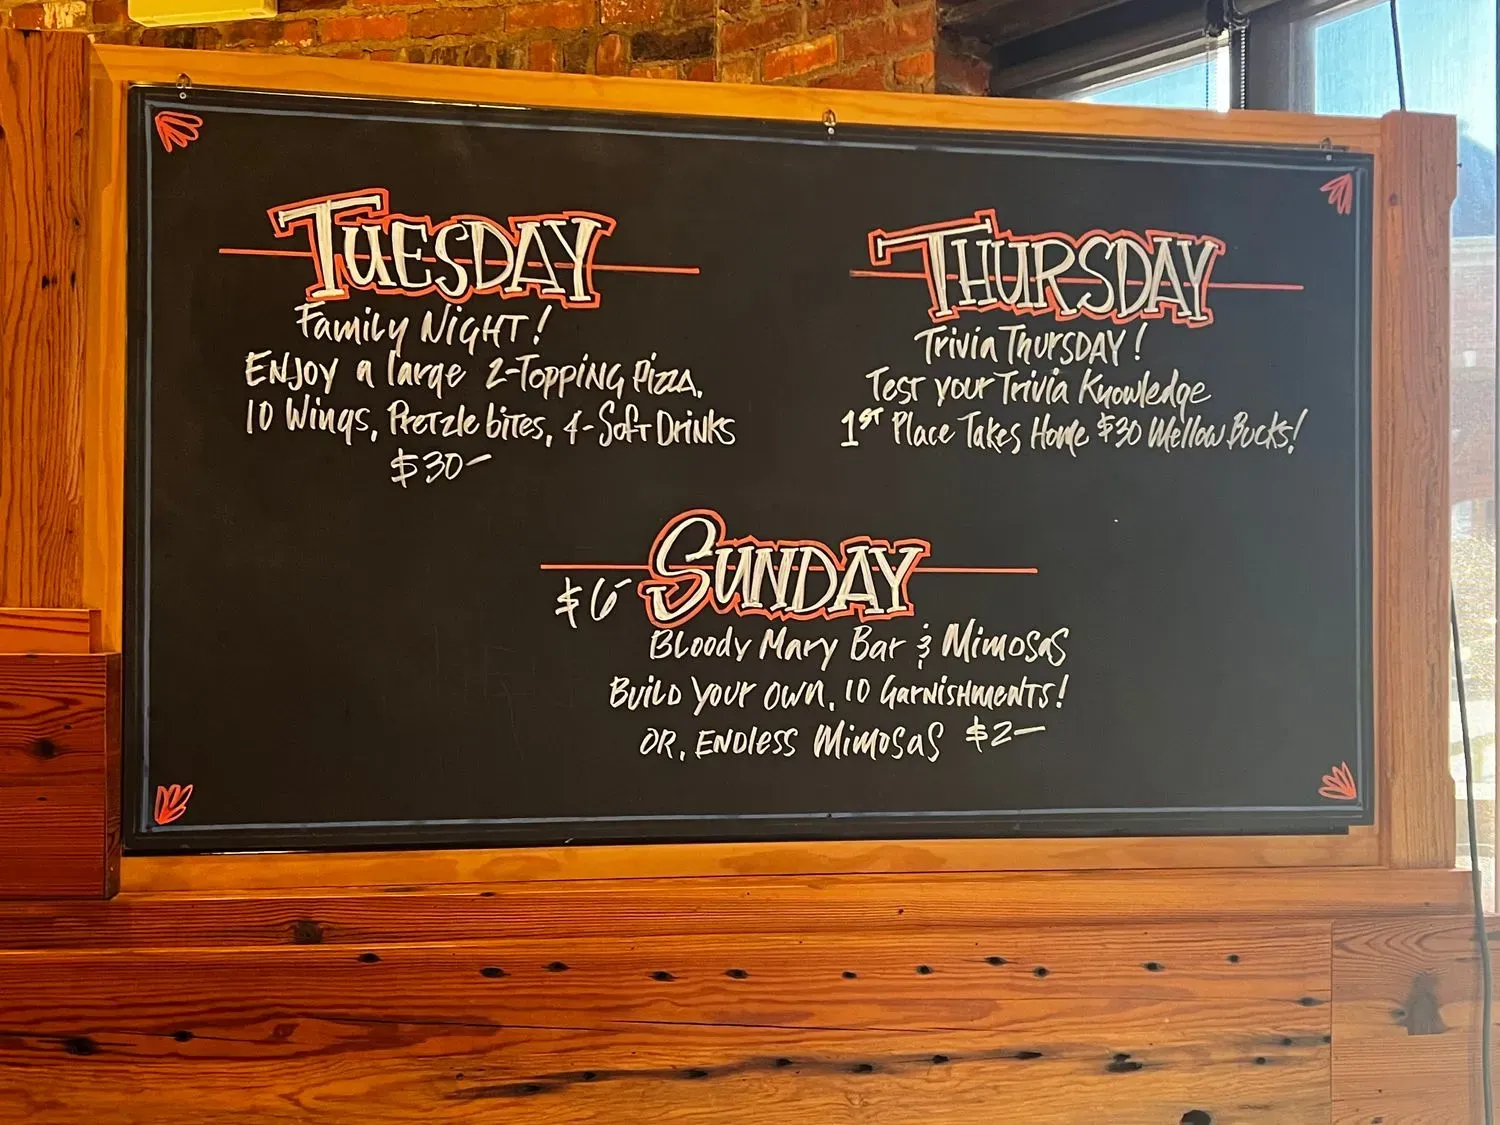 TUESDAY
Family NIGHT!
ENJOY a large 2-TOPPING PIZZA,
10 Wings, Pretzle bites, 4-Soft Drinks
$30-
THURSDAY
Trivia THURSDAY!
TEST your Trivia Knowledge
1ST Place Takes Home $30 Mellow Bucks!
SUNDAY
$6-
BLoody Mary Bar & Mimosas
BUILD Your OWN, 10 GarNISHMENTS!
OR, ENDLESS Mimosas $2-